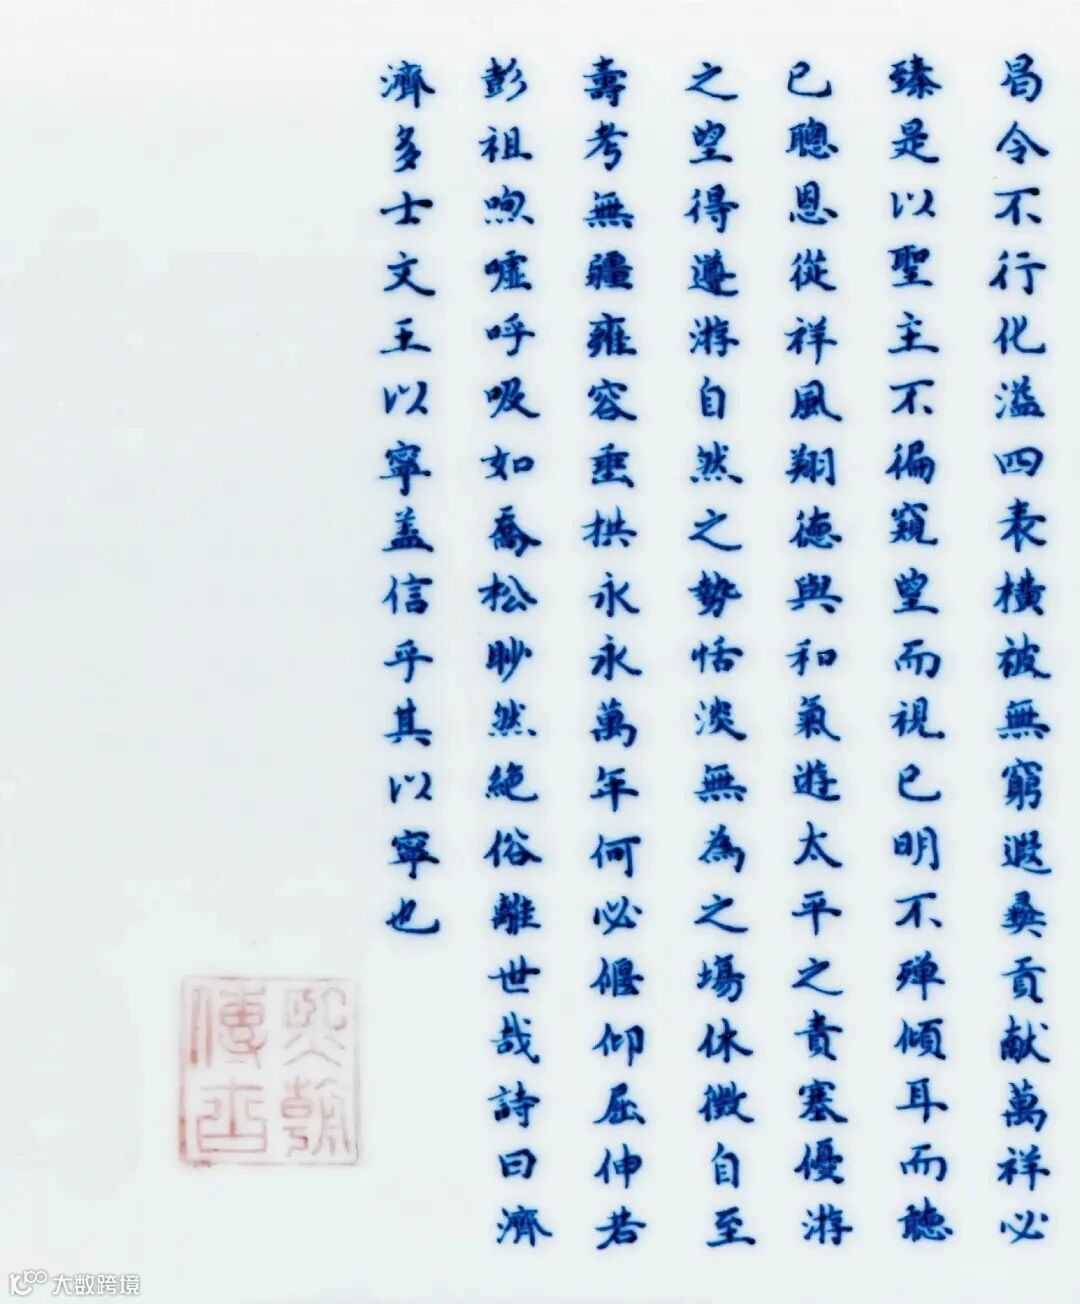 曷令不行化溢四表横被無窮遐彝貢献萬祥必
臻是以聖主不徧窺望而視已明不殫傾耳而聽
已聰恩從祥風翔德與和氣遊太平之責塞優游
之望得遵游自然之勢恬淡無為之塲休徵自至
壽考無疆雍容垂拱永永萬年何必偃仰屈伸若
彭祖喣噓呼吸如喬松眇然絶俗離世哉詩曰濟
濟多士文王以寧盖信乎其以寧也
熙朝
傳古
大数跨境